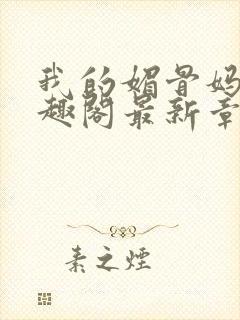 我的媚骨妈
趣阁最新章
素之煙